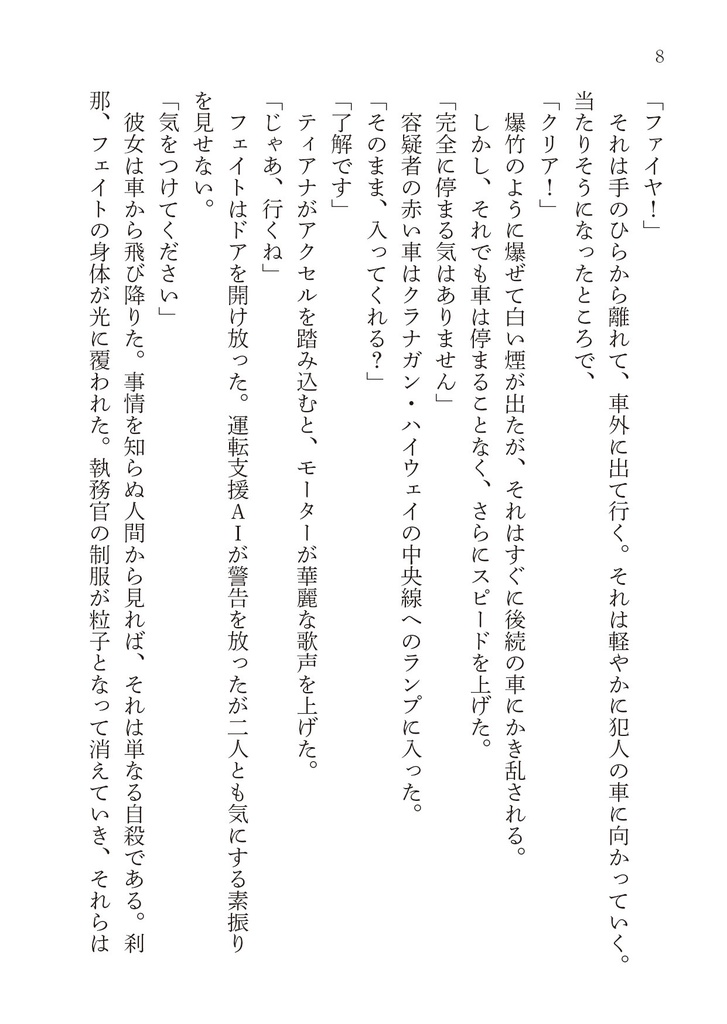 8
「ファイヤ！」
それは手のひらから離れて、車外に出て行く。それは軽やかに犯人の車に向かっていく。
当たりそうになったところで、
「クリア！」
爆竹のように爆ぜて白い煙が出たが、それはすぐに後続の車にかき乱される。
しかし、それでも車は停まることなく、さらにスピードを上げた。
「完全に停まる気はありません」
容疑者の赤い車はクラナガン・ハイウェイの中央線へのランプに入った。
「そのまま、入ってくれる？」
「了解です」
ティアナがアクセルを踏み込むと、モーターが華麗な歌声を上げた。
「じゃあ、行くね」
フェイトはドアを開け放った。運転支援ＡＩが警告を放ったが二人とも気にする素振り
を見せない。
「気をつけてください」
彼女は車から飛び降りた。事情を知らぬ人間から見れば、それは単なる自殺である。刹
那、フェイトの身体が光に覆われた。執務官の制服が粒子となって消えていき、それらは